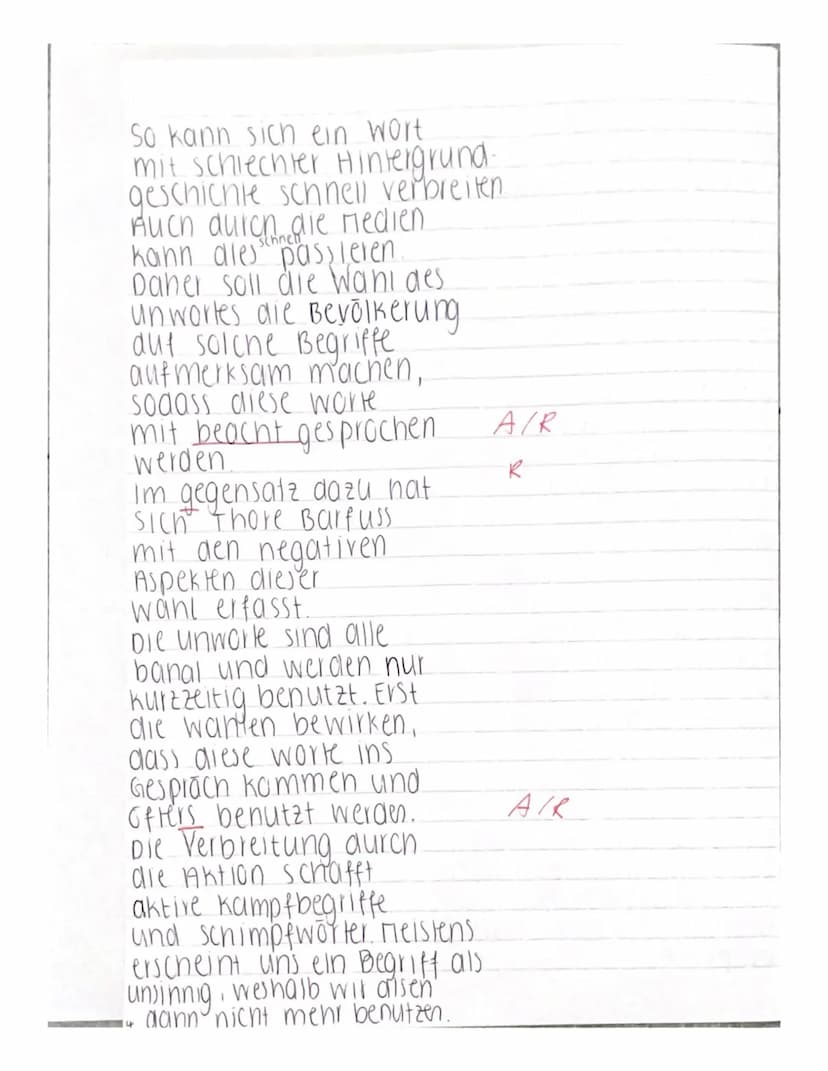 So kann sich ein Wort
mit schlechter Hintergrund-
geschichte schnell verbreiten.
Auch durch die Medien
kann dies schnell passieren.
Daher soll die Wahl des
unwortes die Bevölkerung
auf solche Begriffe
aufmerksam machen,
sodass diese Worte
mit beacht gesprochen A/R
werden.
R
Im gegensatz dazu hat
sich Thore Barfuss
mit den negativen
Aspekten dieser
Wahl erfasst.
Die unworte sind alle
banal und werden nur
kurtzzeitig benutzt. Erst
die Wahlen bewirken,
dass diese Worte ins
Gespräch kommen und
öfters benutzt werden. A/R
Die Verbreitung durch
die Aktion schafft
aktive Kampfbegriffe
und Schimpfwörter. Meistens
erscheint uns ein Begriff als
unsinnig, weshalb wir diesen
dann nicht mehr benutzen.